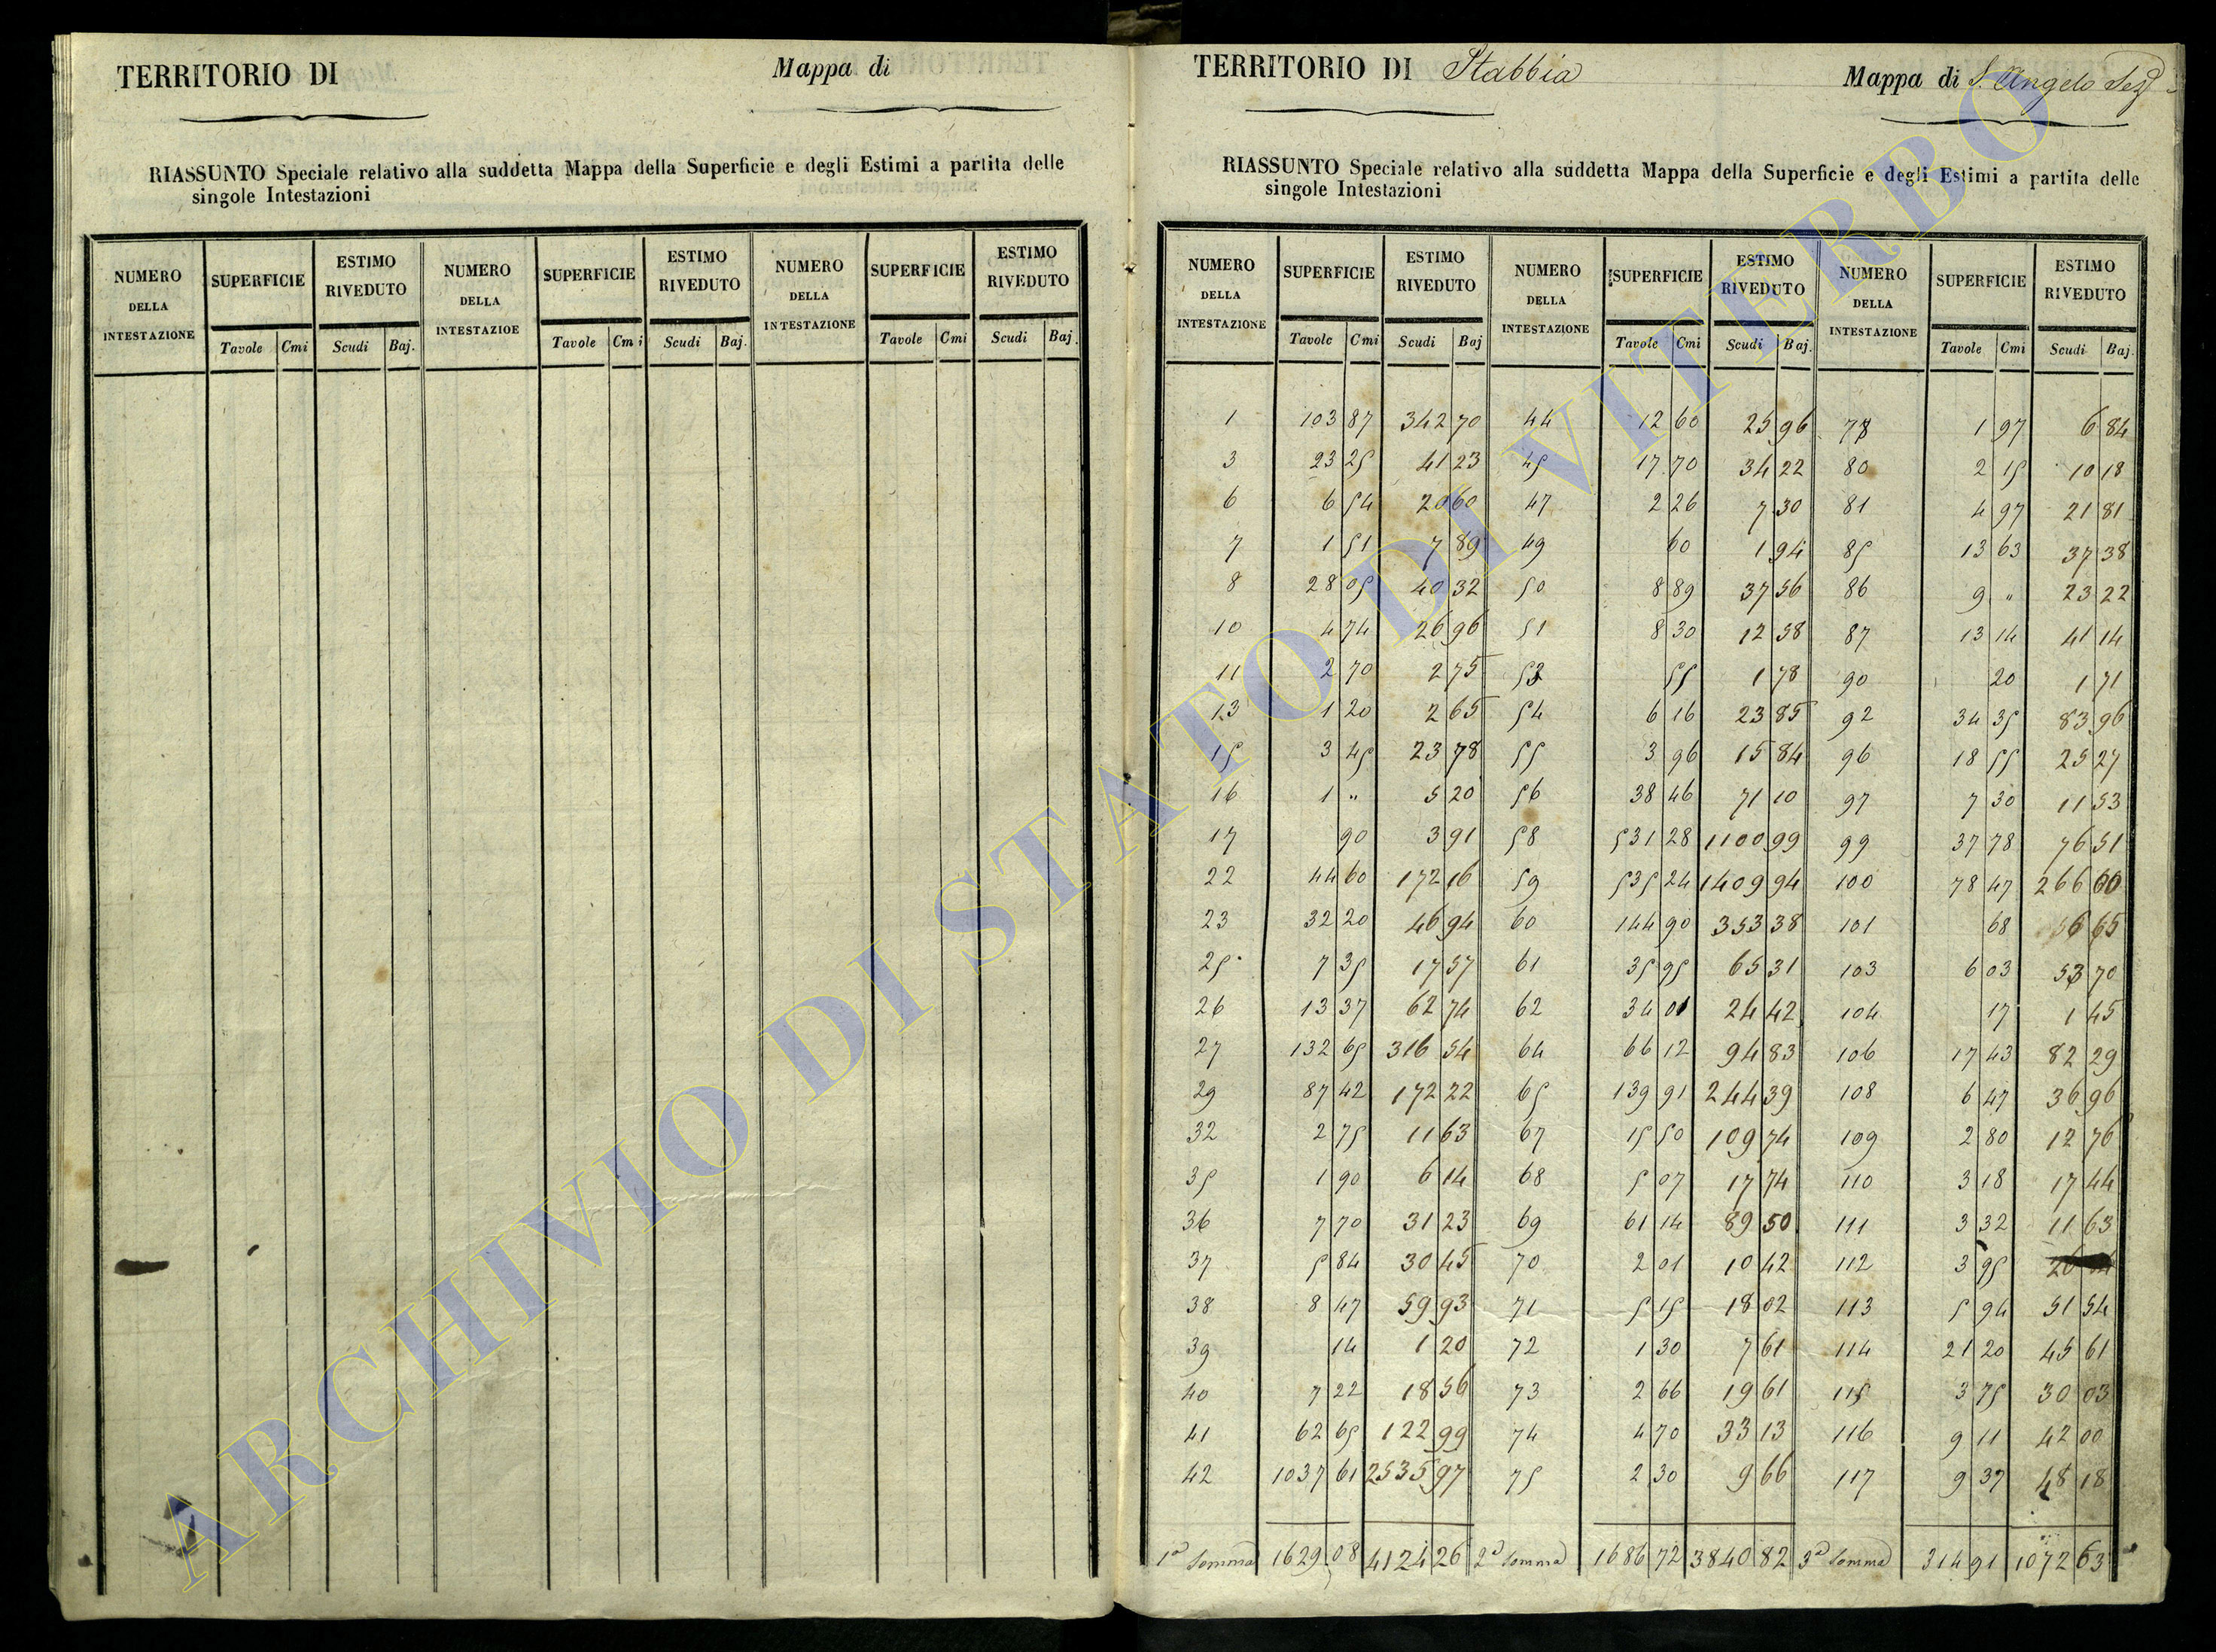 TERRITORIO DI Mappa di
RIASSUNTO Speciale relativo alla suddetta Mappa della Superficie e degli Estimi a partita delle
singole Intestazioni
NUMERO DELLA INTESTAZIONE SUPERFICIE ESTIMO RIVEDUTO NUMERO DELLA INTESTAZIOE SUPERFICIE ESTIMO RIVEDUTO NUMERO DELLA INTESTAZIONE SUPERFICIE ESTIMO RIVEDUTO
Tavole Cmi Scudi Baj. Tavole Cmi Scudi Baj. Tavole Cmi Scudi Baj.
TERRITORIO DI Stabbia Mappa di S. Angelo Sez
RIASSUNTO Speciale relativo alla suddetta Mappa della Superficie e degli Estimi a partita delle
singole Intestazioni
NUMERO DELLA INTESTAZIONE SUPERFICIE ESTIMO RIVEDUTO NUMERO DELLA INTESTAZIONE SUPERFICIE ESTIMO RIVEDUTO NUMERO DELLA INTESTAZIONE SUPERFICIE ESTIMO RIVEDUTO
Tavole Cmi Scudi Baj Tavole Cmi Scudi Baj. Tavole Cmi Scudi Baj.
1 103 87 342 70 44 12 60 25 96 78 1 97 6 84
3 23 25 41 23 45 17 70 34 22 80 2 15 10 18
6 6 54 20 60 47 2 26 7 30 81 4 97 21 81
7 1 51 7 89 49 60 1 94 85 13 63 37 38
8 28 05 40 32 50 8 89 37 56 86 9 " 23 22
10 4 74 26 96 51 8 30 12 58 87 13 14 41 14
11 2 70 2 75 53 55 1 78 90 20 1 71
13 1 20 2 65 54 6 16 23 85 92 34 35 83 96
15 3 45 23 78 55 3 96 15 84 96 18 55 25 27
16 1 " 5 20 56 38 46 71 10 97 7 30 11 53
17 90 3 91 58 531 28 1100 99 99 37 78 76 51
22 44 60 172 16 59 535 24 1409 94 100 78 47 266 60
23 32 20 46 94 60 144 90 353 38 101 68 65
25 7 35 17 57 61 35 95 65 31 103 6 03 53 70
26 13 37 62 74 62 34 01 24 42 104 17 1 45
27 132 65 316 54 64 66 12 94 83 106 17 43 82 29
29 87 42 172 22 65 139 91 244 39 108 6 47 36 96
32 2 75 11 63 67 15 50 109 74 109 2 80 12 76
35 1 90 6 14 68 5 07 17 74 110 3 18 17 44
36 7 70 31 23 69 61 14 89 50 111 3 32 11 63
37 5 84 30 45 70 2 01 10 42 112 3 95
38 8 47 59 93 71 5 15 18 02 113 5 94 51 54
39 14 1 20 72 1 30 7 61 114 21 20 45 61
40 7 22 18 56 73 2 66 19 61 115 3 75 30 03
41 62 65 122 99 74 4 70 33 13 116 9 11 42 00
42 1037 61 2535 97 75 2 30 9 66 117 9 37 48 18
1a Somma 1629 08 4124 26 2a Somma 1686 72 3840 82 3a Somma 314 91 1072 63
ARCHIVIO DI STATO DI VITERBO